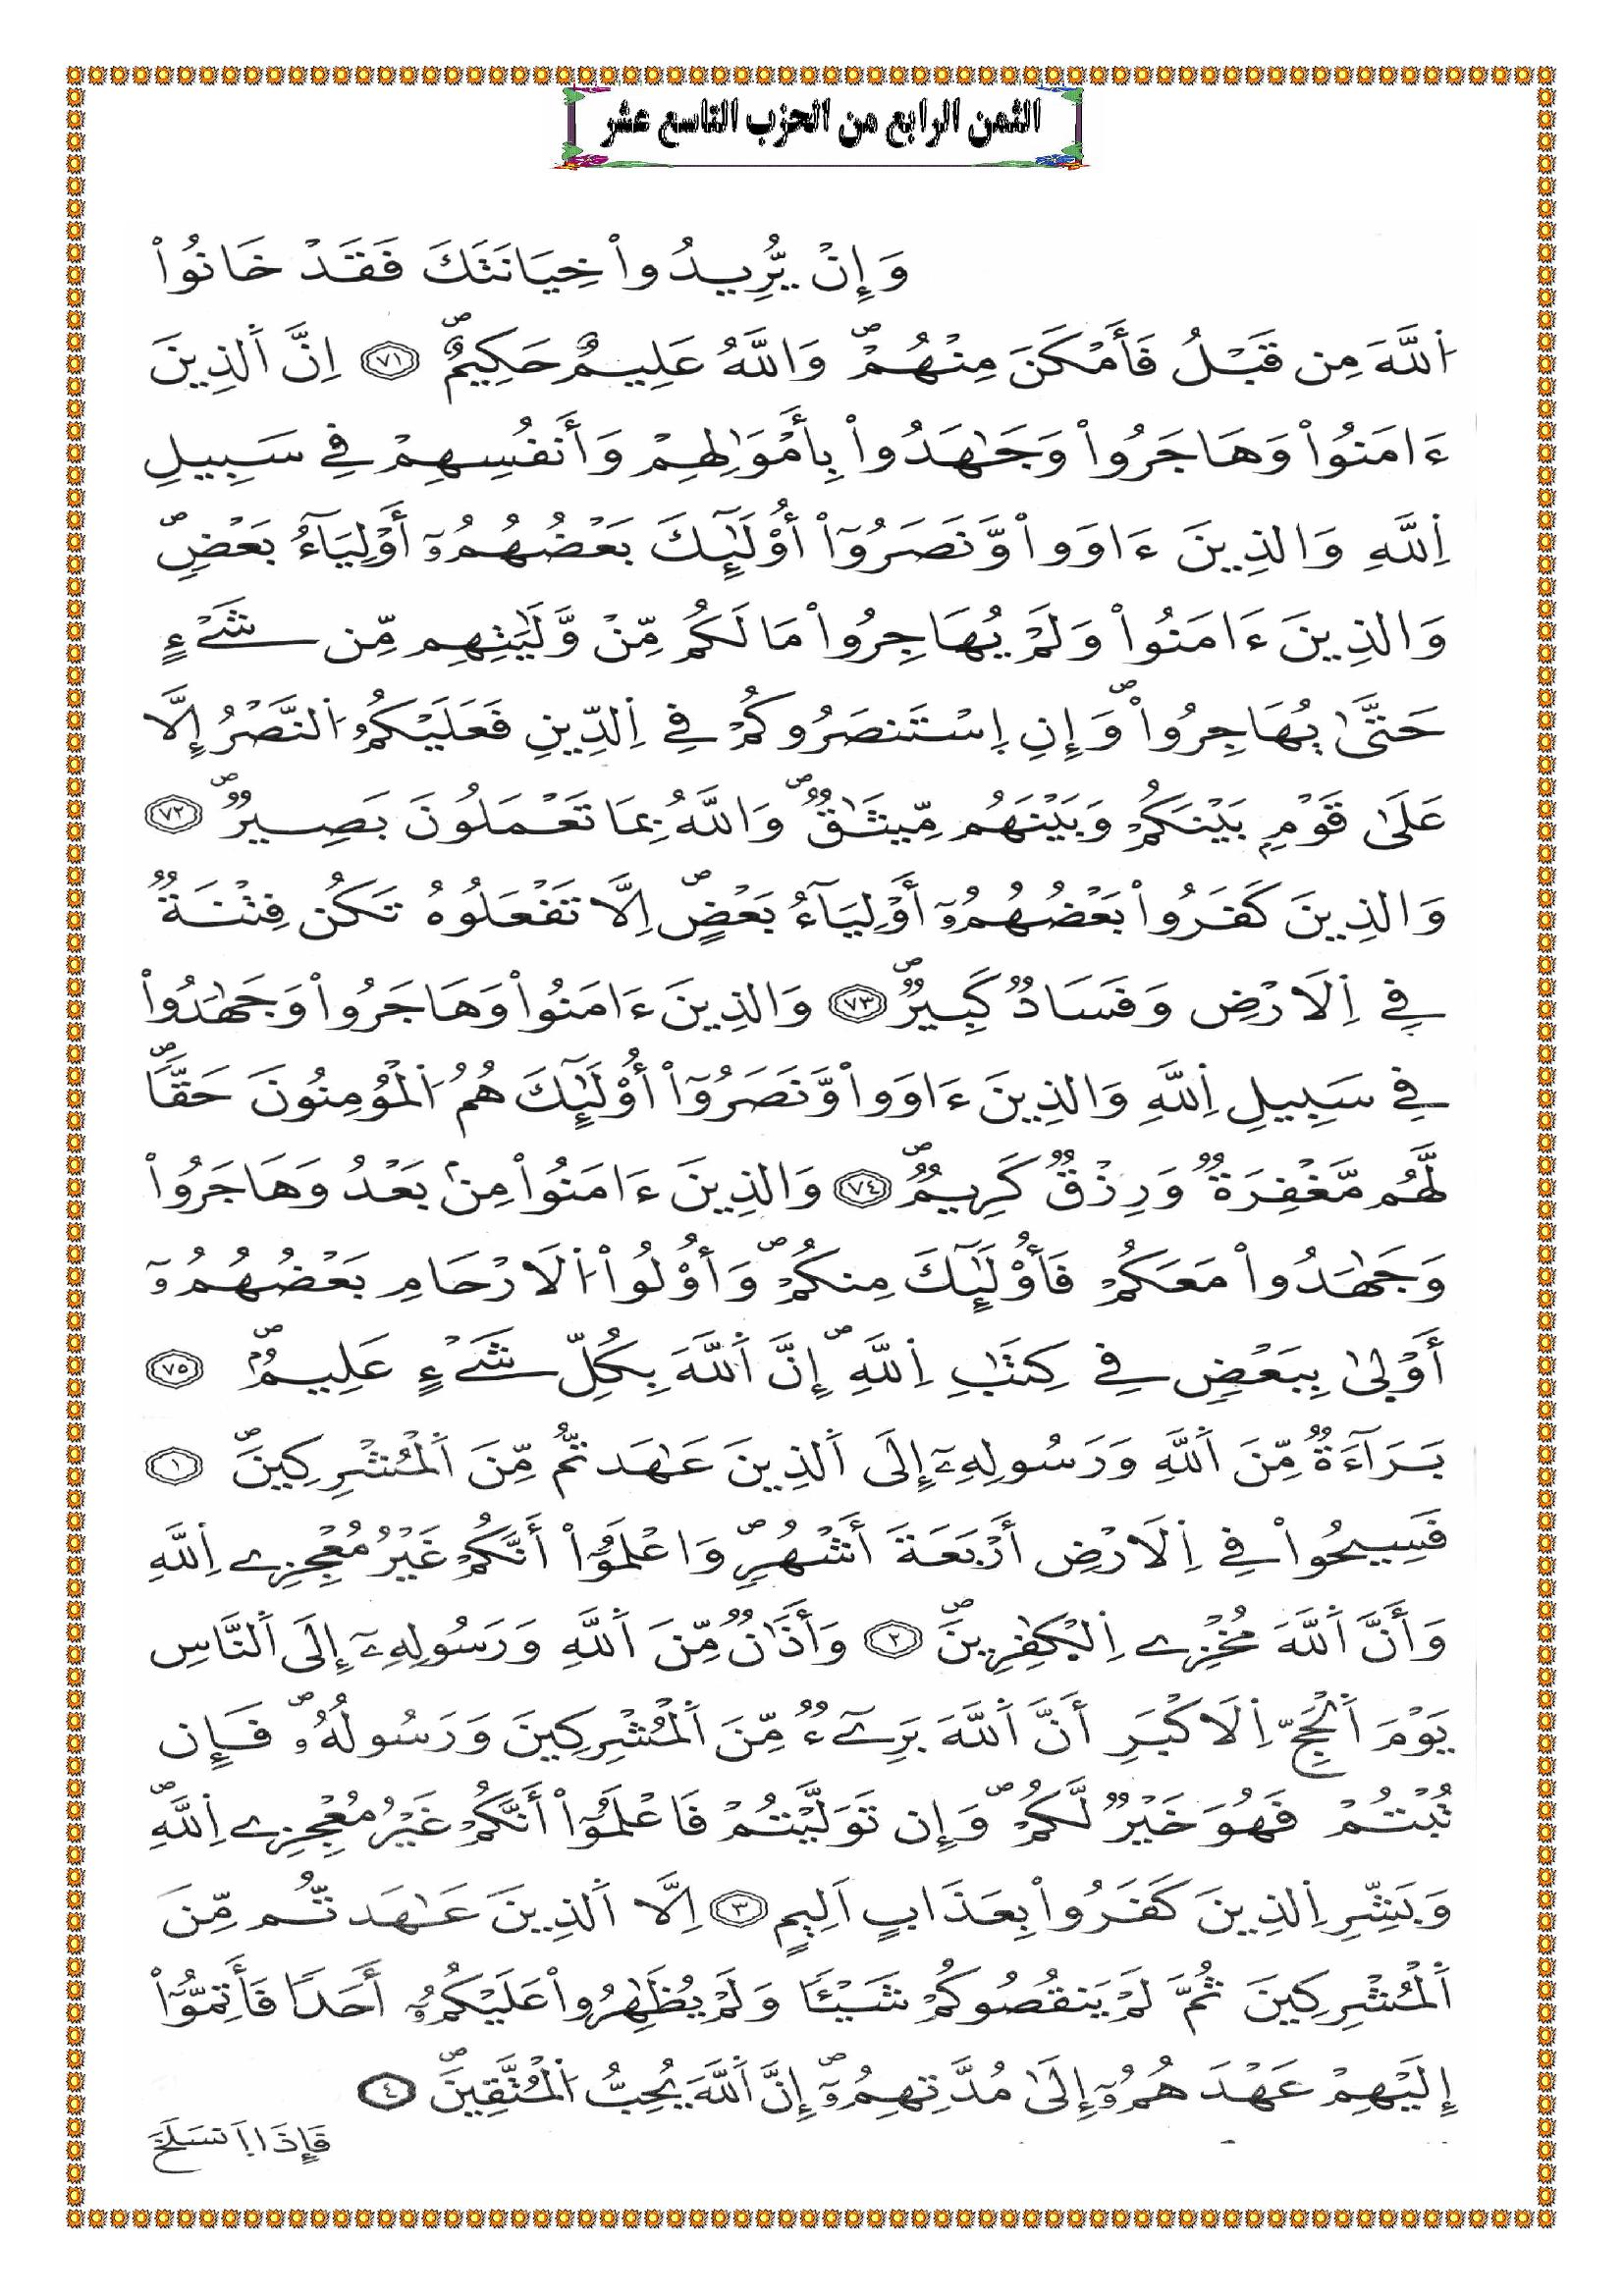 الثمن الرابع من الحزب التاسع عشر
وَإِنْ يُّرِيدُواْ خِيَانَتَكَ فَقَدْ خَانُواْ
اُ۬للَّهَ مِن قَبْلُ فَأَمْكَنَ مِنْهُمْۖ وَاللَّهُ عَلِيمٌ حَكِيمٌۖ ٧١ اِنَّ اَ۬لذِينَ
ءَامَنُواْ وَهَاجَرُواْ وَجَٰهَدُواْ بِأَمْوَٰلِهِمْ وَأَنفُسِهِمْ فِے سَبِيلِ
اِ۬للَّهِ وَالذِينَ ءَاوَواْ وَّنَصَرُوٓاْ أُوْلَٰٓئِكَ بَعْضُهُمُۥٓ أَوْلِيَآءُ بَعْضٖۖ
وَالذِينَ ءَامَنُواْ وَلَمْ يُهَاجِرُواْ مَا لَكُم مِّنْ وَّلَٰيَتِهِم مِّن شَےْءٍ
حَتَّىٰ يُهَاجِرُواْۖ وَإِنِ اِ۪سْتَنصَرُوكُمْ فِے اِ۬لدِّينِ فَعَلَيْكُمُ اُ۬لنَّصْرُ إِلَّا
عَلَىٰ قَوْمِۢ بَيْنَكُمْ وَبَيْنَهُم مِّيثَٰقٞۖ وَاللَّهُ بِمَا تَعْمَلُونَ بَصِيرٞۖ ٧٢
وَالذِينَ كَفَرُواْ بَعْضُهُمُۥٓ أَوْلِيَآءُ بَعْضٍۖ اِلَّا تَفْعَلُوهُ تَكُن فِتْنَةٞ
فِے اِ۬لَارْضِ وَفَسَادٞ كَبِيرٞۖ ٧٣ وَالذِينَ ءَامَنُواْ وَهَاجَرُواْ وَجَٰهَدُواْ
فِے سَبِيلِ اِ۬للَّهِ وَالذِينَ ءَاوَواْ وَّنَصَرُوٓاْ أُوْلَٰٓئِكَ هُمُ اُ۬لْمُؤْمِنُونَ حَقّاٗۖ
لَّهُم مَّغْفِرَةٞ وَرِزْقٞ كَرِيمٞۖ ٧٤ وَالذِينَ ءَامَنُواْ مِنۢ بَعْدُ وَهَاجَرُواْ
وَجَٰهَدُواْ مَعَكُمْ فَأُوْلَٰٓئِكَ مِنكُمْۖ وَأُوْلُواْ اُ۬لَارْحَامِ بَعْضُهُمُۥٓ
أَوْلَىٰ بِبَعْضٖ فِے كِتَٰبِ اِ۬للَّهِۖ إِنَّ اَ۬للَّهَ بِكُلِّ شَےْءٍ عَلِيمٌۖ ٧٥
بَرَآءَةٞ مِّنَ اَ۬للَّهِ وَرَسُولِهِۦٓ إِلَى اَ۬لذِينَ عَٰهَدتُّم مِّنَ اَ۬لْمُشْرِكِينَۖ ١
فَسِيحُواْ فِے اِ۬لَارْضِ أَرْبَعَةَ أَشْهُرٖۖ وَاعْلَمُوٓاْ أَنَّكُمْ غَيْرُ مُعْجِزِے اِ۬للَّهِ
وَأَنَّ اَ۬للَّهَ مُخْزِے اِ۬لْكٰ۪فِرِينَۖ ٢ وَأَذَٰنٞ مِّنَ اَ۬للَّهِ وَرَسُولِهِۦٓ إِلَى اَ۬لنَّاسِ
يَوْمَ اَ۬لْحَجِّ اِ۬لَاكْبَرِ أَنَّ اَ۬للَّهَ بَرِےٓءٞ مِّنَ اَ۬لْمُشْرِكِينَ وَرَسُولُهُۥۖ فَإِن
تُبْتُمْ فَهُوَ خَيْرٞ لَّكُمْۖ وَإِن تَوَلَّيْتُمْ فَاعْلَمُوٓاْ أَنَّكُمْ غَيْرُ مُعْجِزِے اِ۬للَّهِۖ
وَبَشِّرِ اِ۬لذِينَ كَفَرُواْ بِعَذَابٍ اَلِيمٍ ٣ اِلَّا اَ۬لذِينَ عَٰهَدتُّم مِّنَ
اَ۬لْمُشْرِكِينَ ثُمَّ لَمْ يَنقُصُوكُمْ شَيْـٔاٗ وَلَمْ يُظَٰهِرُواْ عَلَيْكُمُۥٓ أَحَداٗ فَأَتِمُّوٓاْ
إِلَيْهِمْ عَهْدَهُمُۥٓ إِلَىٰ مُدَّتِهِمُۥٓۖ إِنَّ اَ۬للَّهَ يُحِبُّ اُ۬لْمُتَّقِينَۖ ٤
فَإِذَا اَ۪نسَلَخَ